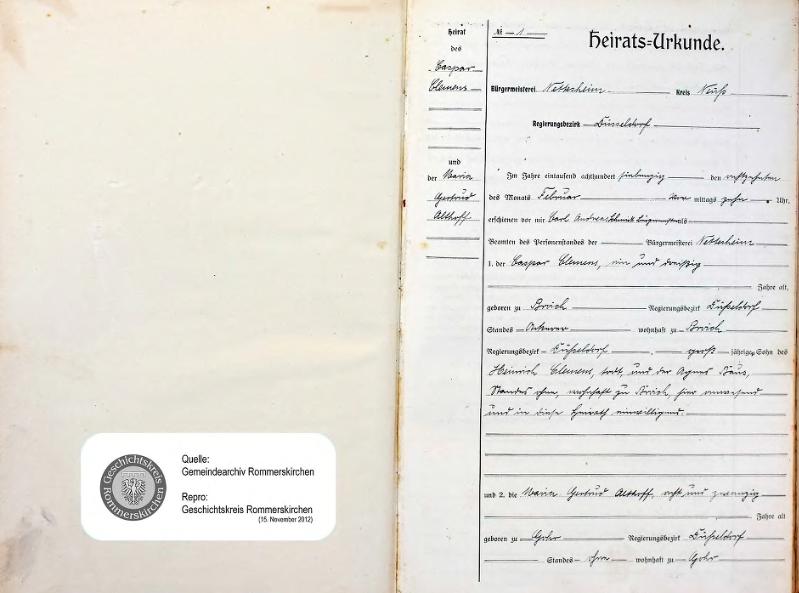 Geschichtskreis Rommerskirchen
Quelle:
Gemeindearchiv Rommerskirchen
Repro:
Geschichtskreis Rommerskirchen
(15. November 2012)
Heirat
des
Caspar
Clemens
und
der Maria
Gertrud
Althoff
№ 1
Heirats-Urkunde.
Bürgermeisterei Nettesheim Kreis Neuß
Regierungsbezirk Düsseldorf
Im Jahre eintausend achthundert siebenzig den achtzehnten
des Monats Februar Vor mittags zehn Uhr,
erschienen vor mir Carl Andreas Schmitt Bürgermeister als
Beamten des Personenstandes der Bürgermeisterei Nettesheim
1. der Caspar Clemens, ein und dreißig
Jahre alt,
geboren zu Broich Regierungsbezirk Düsseldorf
Standes Ackerer wohnhaft zu Broich
Regierungsbezirk Düsseldorf, groß jährige Sohn des
Heinrich Clemens, todt, und der Agnes
Standes ohne, wohnhaft zu Broich, hier anwesend
und in diese Heirath einwilligend.
und 2. die Maria Gertrud Althoff, acht und zwanzig
Jahre alt
geboren zu Gohr Regierungsbezirk Düsseldorf
Standes ohne wohnhaft zu Gohr